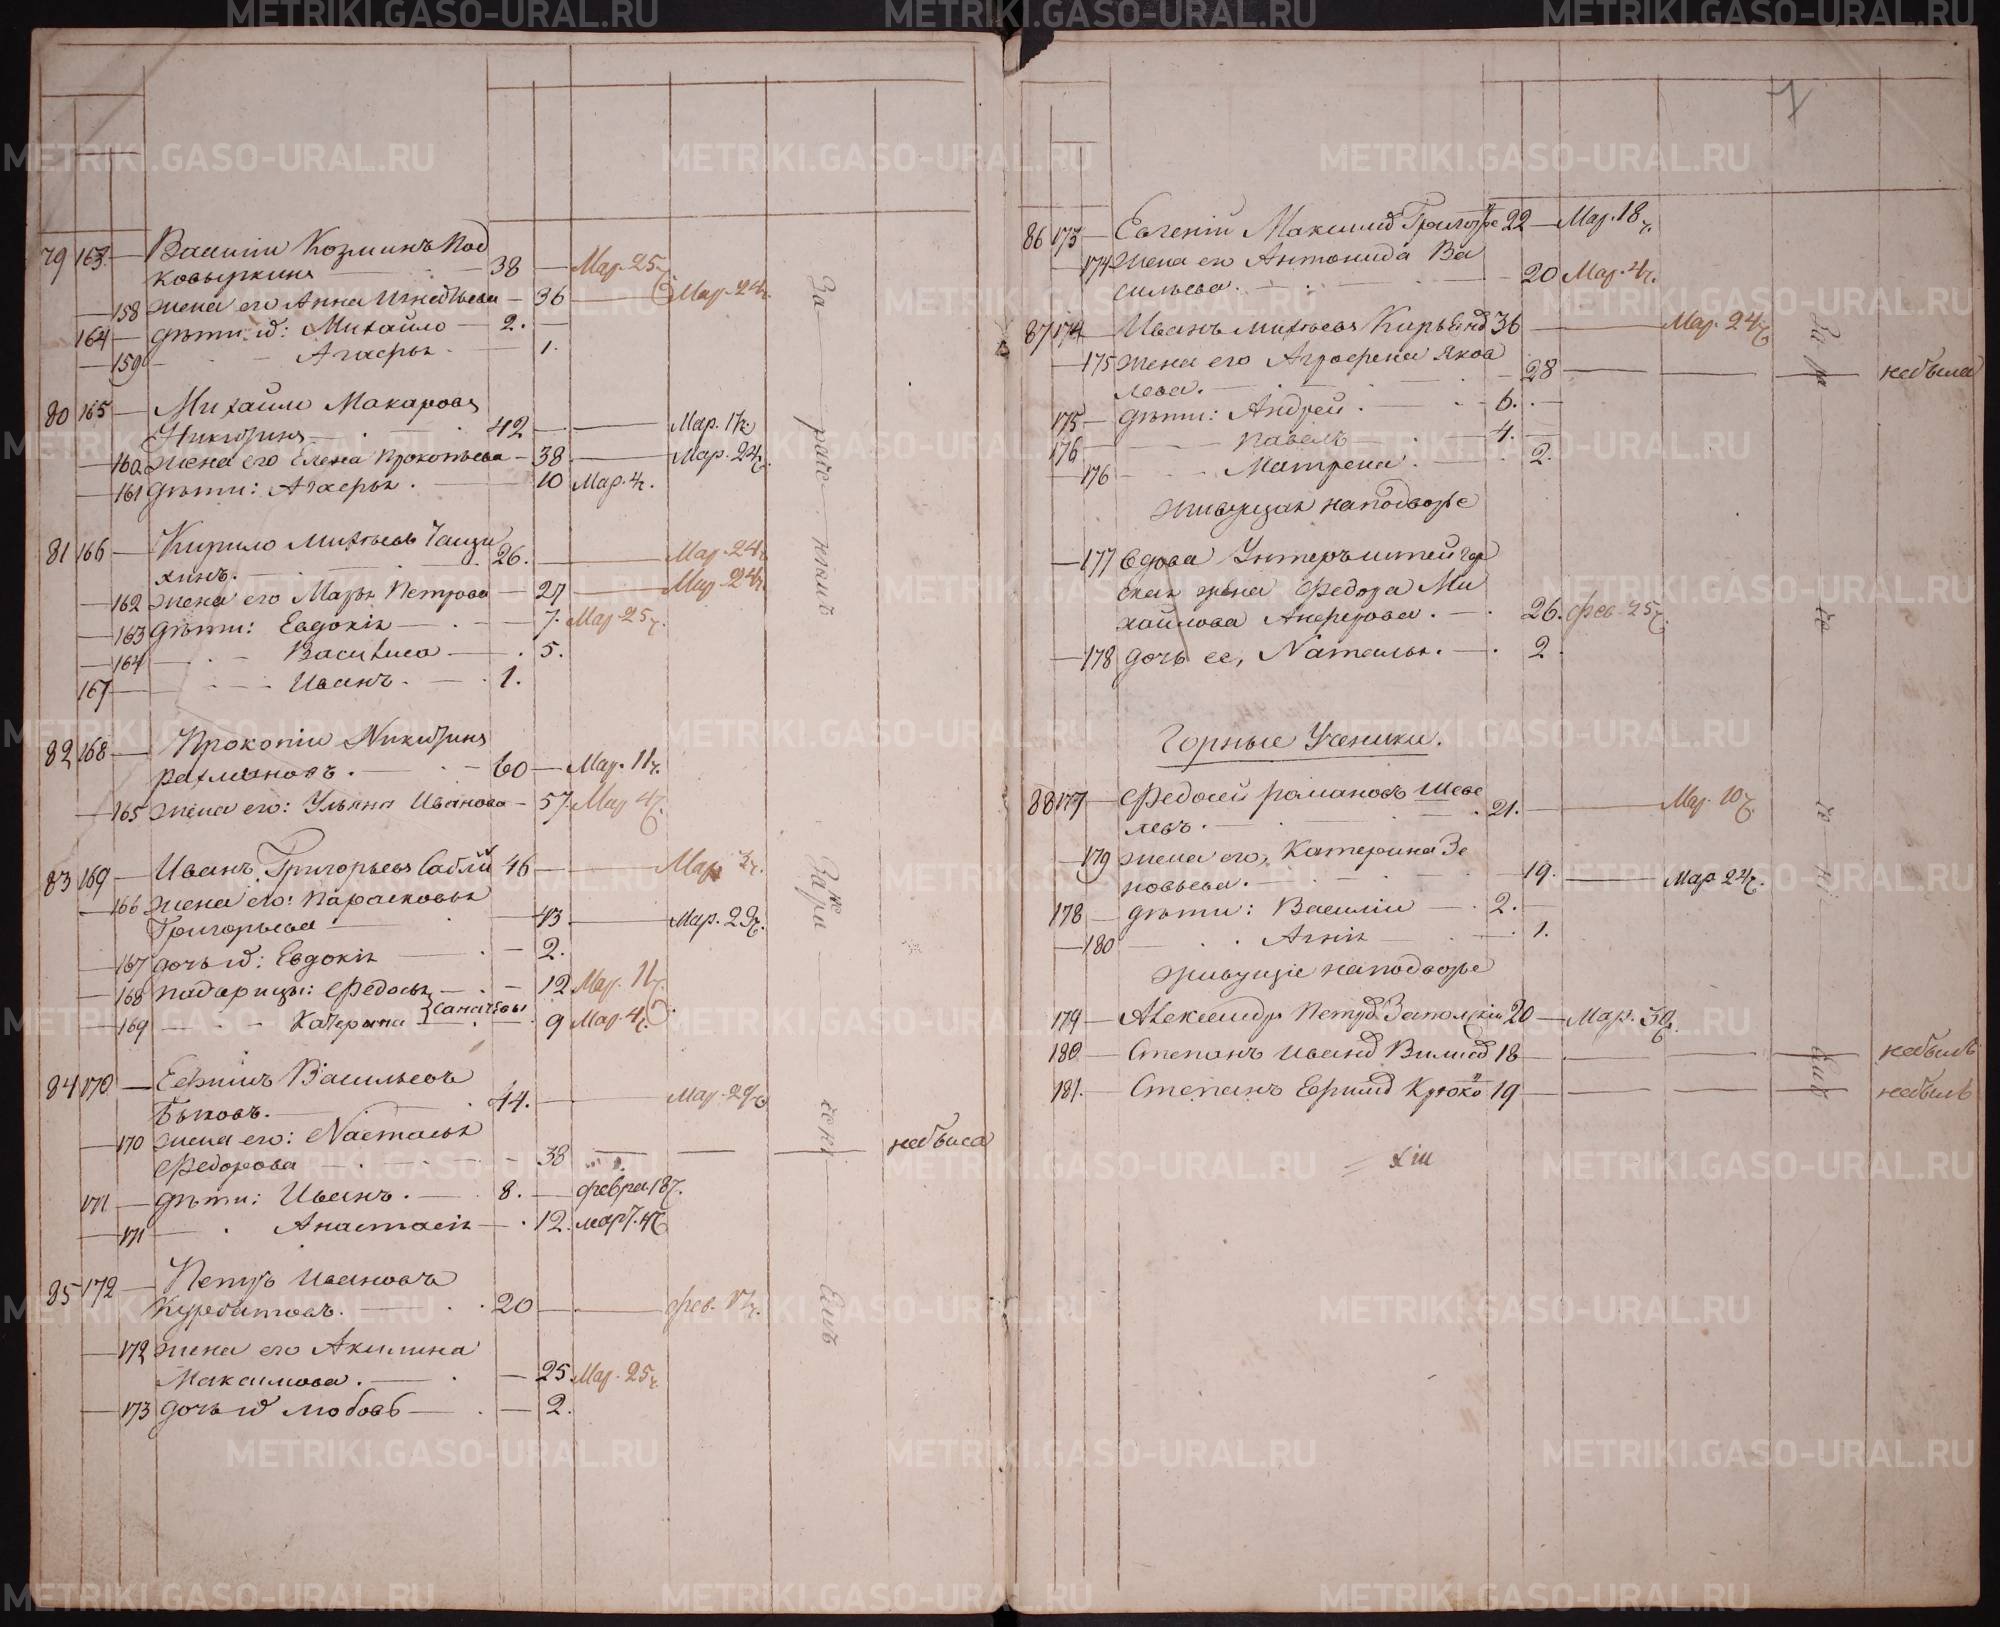 79 163. — Василіи Козминъ Под
ковыркинъ — 38 — Мар. 25ч.
— 158 жена его Анна Игнатьева — 36 — Мар. 24ч.
164 — дѣти их: Михайло — 2. —
— 159 — Агафья — 1.
80 165 — Михайло Макаровъ
Никитинъ — 42 — — Мар. 17ч.
— 160 жена его Елена Прокопьева — 38 — Мар. 24ч.
— 161 дѣти: Агафья. — 10 Мар. 4ч.
81 166 — Кирило Михѣевъ
хинъ. — 26. — Мар. 24ч.
— 162 жена его Марья Петрова — 27 — Мар. 24ч.
— 163 дѣти: Евдокія — 7. Мар. 25ч.
— 164 — Василиса — 5.
167 — Иванъ. — 1.
82 168 — Прокопіи Никитинъ
рахмановъ. — 60 — Мар. 11ч.
— 165 жена его: Ульяна Иванова — 57 Мар 4ч.
83 169 — Иванъ Григорьевъ 46 — Мар 3ч.
— 166 жена его: Парасковья
Григорьева — 43. — Мар. 23ч.
— 167 дочь их: Евдокія — 2.
— 168 падчерицы: Федосья — 12 Мар. 11ч.
— 169 — Катерина — 9 Мар. 4ч.
84 170 — Ефимъ Васильевъ
Быковъ. — 44. — Мар. 29ч.
— 170 жена его: Наталья
Федорова — 38 — — — небыла
171 — дѣти: Иванъ. — 8. — февра. 18ч.
— 171 — Анастасія — 12. мар. 4ч.
85 172 — Петръ Ивановъ
Курбатовъ. — 20 — фев. 17ч.
— 172 жена его Акилина
Максимова. — 25 Мар. 25ч.
— 173 дочь их любовь — 2.
За
раче
нкинъ
86 173 — Евгеніи Максимо 22 — Мар. 18ч.
— 174 жена его Антонида Ва
сильева. — 20 Мар. 4ч.
87 174 — Иванъ Михѣевъ 36 — Мар. 24ч.
— 175 жена его Аграфена Яков
лева. — 28 — — — небыла
175 — дѣти: Андрей. — 6. —
176 — павелъ — 4.
— 176 — Матрена. — 2.
живущая наподворье
— 177 вдова Унтеръштейгер
ская жена Федора Ми
хайлова — 26. фев. 25ч.
— 178 дочь ее, Наталья. — 2.
Горные Ученики.
88 177 — Федосей романовъ Шеве
левъ. — 21. — Мар. 10ч.
— 179 жена его, Катерина Зе
новьева. — 19. — Мар. 24ч.
178 — дѣти: Василіи — 2. —
— 180 — Агнія — 1.
живущіе наподворье
179 — Александр Петр. Заполскіи 20 — Мар. 30ч.
180 — Степанъ Иван. 18 — — — небылъ
181. — Степанъ Ефим. Крюко 19 — — — небылъ